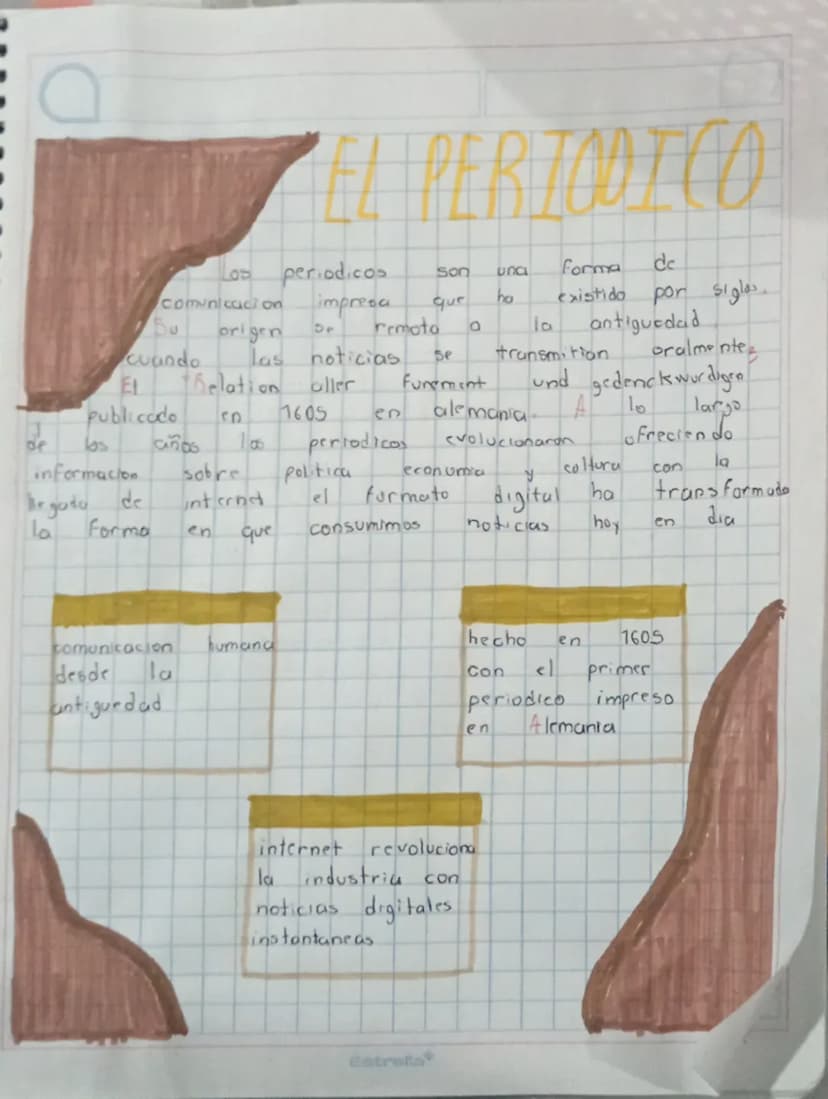 EL PERIODICO
Los periodicos son una forma de
comunicacion impresa que ha existido por siglos.
Su origen se remota a la antiguedad
cuando las noticias se transmitian oralmente
El Relation aller Funement und gedenckwurdigen
publicado en 1605 en alemania. A lo largo
de los años los periodicos evolucionaron ofreciendo
informacion sobre politica economia y coltura con la
llegada de internet el formato digital ha transformado
la forma en que consumimos noticias hoy en dia
comunicacion humana
desde la
antiguedad
hecho en 1605
con el primer
periodico impreso
en Alemania
internet revoluciona
la industria con
noticias digitales
instantaneas
estrella